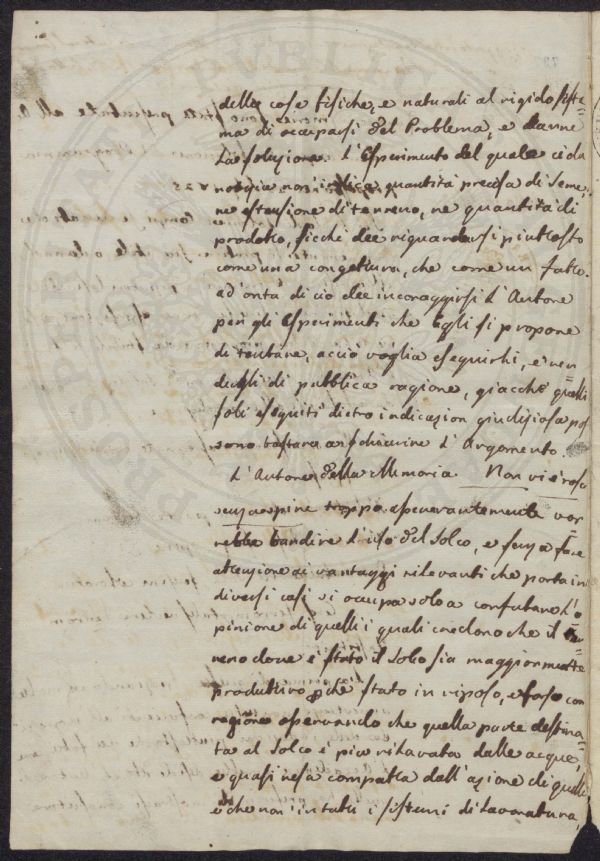 delle cose fisiche, e naturali al rigido siste-
ma di occuparsi del Problema, e darne
la soluzione. L'Esperimento del quale ci dà
notizia non indica quantità precisa di seme,
ne estensione di terreno, ne quantità di
prodotto, sicchè dee riguardarsi piuttosto
come una congettura, che come un fatto.
ad onta di ciò dee incoraggirsi l'Autore
per gli Esperimenti che Egli si propone
di tentare, acciò voglia eseguirli, e ren
derli di pubblica ragione, giacchè quelli
soli eseguiti dietro indicazion giudiziosa pos
sono bastare a schiarire l'Argomento.
L'Autore della Memoria Non vi è rosa
senza spine troppo asseverantemente vor
rebbe bandire l'uso del Solco, e senza fare
attenzione ai vantaggi rilevanti che porta in
diversi casi si occupa solo a confutare l'o
pinione di quelli i quali credono che il ter=
reno dove è stato il Solco sia maggiormente
produttivo pchè stato in riposo, e forse con
ragione osservando che quella parte destina
ta al Solco è più dilavata dalle acque,
e quasi resa compatta dall'azione di quelle
e che non in tutti i sistemi di lavoratura